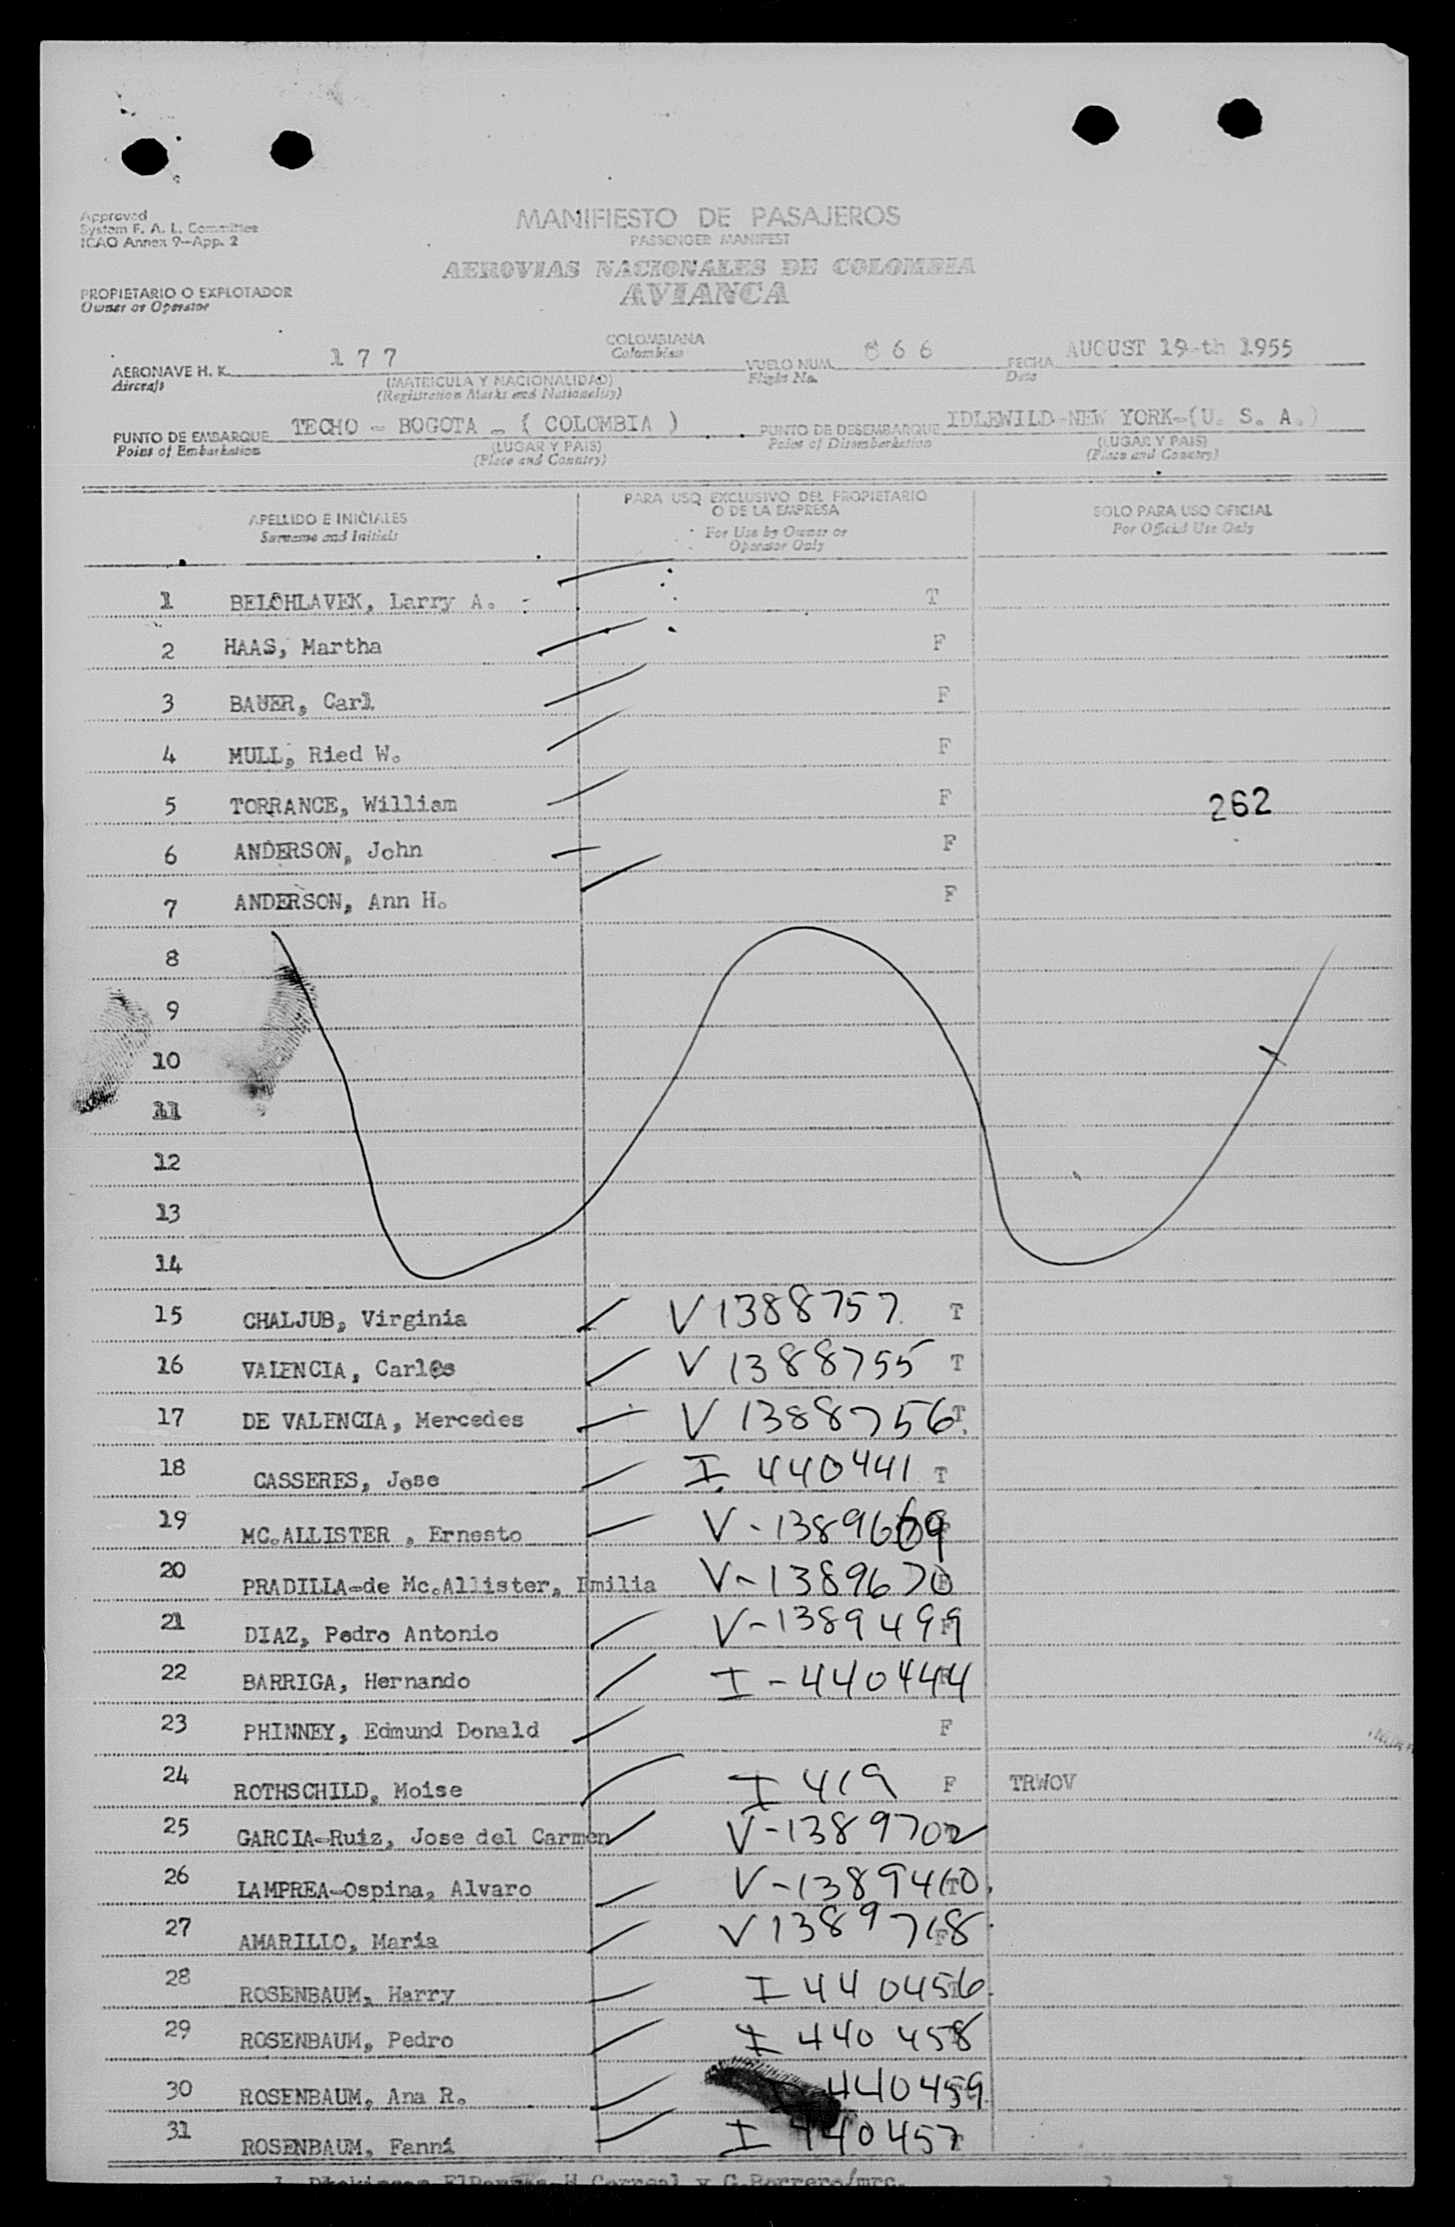 Approved
System F. A. L. Committee
ICAO Annex 9-App. 2
MANIFIESTO DE PASAJEROS
PASSENGER MANIFEST
AEROVIAS NACIONALES DE COLOMBIA
AVIANCA
PROPIETARIO O EXPLOTADOR
Owner or Operator
COLOMBIANA
Colombian
AERONAVE H. K. 177 VUELO NUM. 666 FECHA AUGUST 19-th 1955
Aircraft (MATRICULA Y NACIONALIDAD) Flight No. Date
(Registration Marks and Nationality)
PUNTO DE EMBARQUE TECHO - BOGOTA - ( COLOMBIA ) PUNTO DE DESEMBARQUE IDLEWILD-NEW YORK-(U. S. A.)
Point of Embarkation (LUGAR Y PAIS) Point of Disembarkation (LUGAR Y PAIS)
(Place and Country) (Place and Country)
APELLIDO E INICIALES PARA USO EXCLUSIVO DEL PROPIETARIO O DE LA EMPRESA SOLO PARA USO OFICIAL
Surname and Initials For Use by Owner or Operator Only For Official Use Only
1 BELOHLAVEK, Larry A. T
2 HAAS, Martha F
3 BAUER, Carl F
4 MULL, Ried W. F
5 TORRANCE, William F 262
6 ANDERSON, John F
7 ANDERSON, Ann H. F
8
9
10
11
12
13
14
15 CHALJUB, Virginia V 1388757 T
16 VALENCIA, Carlos V 1388755 T
17 DE VALENCIA, Mercedes V 1388756 T
18 CASSERES, Jose I 440441 T
19 MC.ALLISTER , Ernesto V-1389669
20 PRADILLA-de Mc.Allister, Emilia V-1389670
21 DIAZ, Pedro Antonio V-1389499 F
22 BARRIGA, Hernando I-440444
23 PHINNEY, Edmund Donald F
24 ROTHSCHILD, Moise I 419 F TRWOV
25 GARCIA-Ruiz, Jose del Carmen V-1389702
26 LAMPREA-Ospina, Alvaro V-1389460 T
27 AMARILLO, Maria V 1389768 F
28 ROSENBAUM, Harry I 440456
29 ROSENBAUM, Pedro I 440458
30 ROSENBAUM, Ana R. 440459
31 ROSENBAUM, Fanni I 440457
H Correal y C.Borrero/mrc.